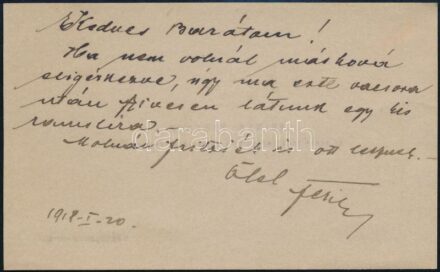 Kedves Barátom!
Ha nem volnál máshová
elígérkezve, úgy ma este vacsora
után szívesen látunk egy kis
ramslira
Molnár is ott lesznek.
Ölel Feri
1918-I-20.
darabanth